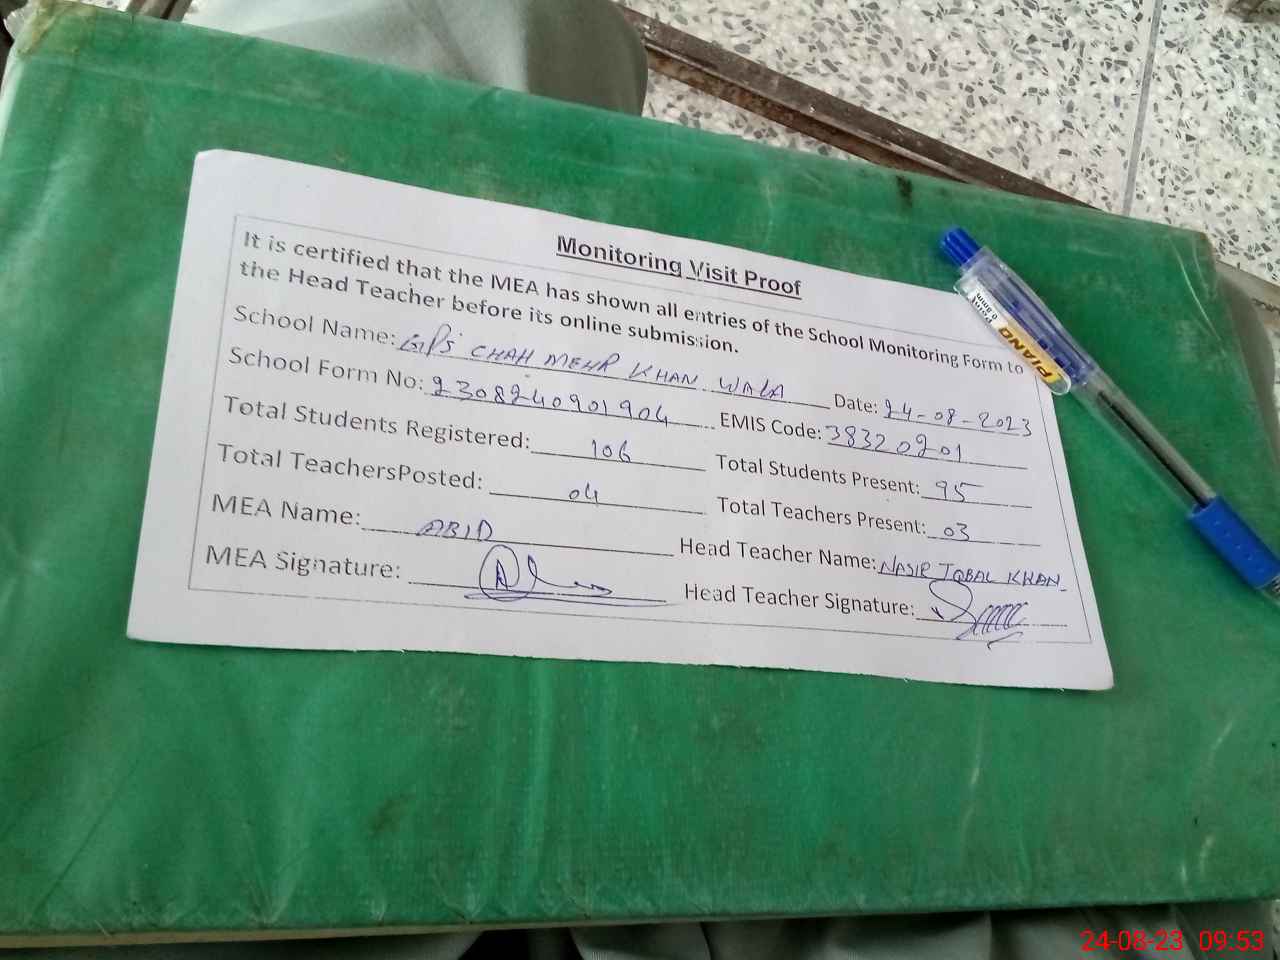 Monitoring Visit Proof
It is certified that the MEA has shown all entries of the School Monitoring Form to
the Head Teacher before its online submission.
School Name: GPS CHAH MEHR KHAN WALA Date: 24-08-2023
School Form No: 2308240901904 EMIS Code: 38320201
Total Students Registered: 106 Total Students Present: 95
Total TeachersPosted: 04 Total Teachers Present: 03
MEA Name: ABID Head Teacher Name: NASIR IQBAL KHAN
MEA Signature: Head Teacher Signature:
PIANO
Point
0.8mm
24-08-23 09:53